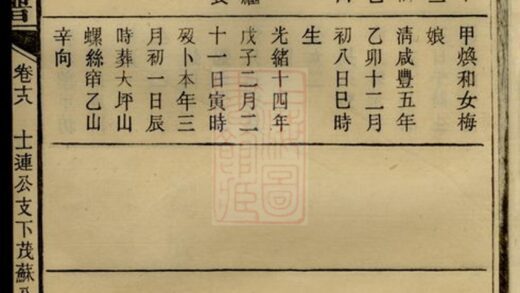 甲煥和女梅
娘
清咸豐五年
乙卯十二月
初八日巳時
生
光緒十四年
戊子二月二
十一日寅時
歿卜本年三
月初一日辰
時葬大坪山
螺絲窜乙山
辛向
卷十八
士連公支下茂蘇